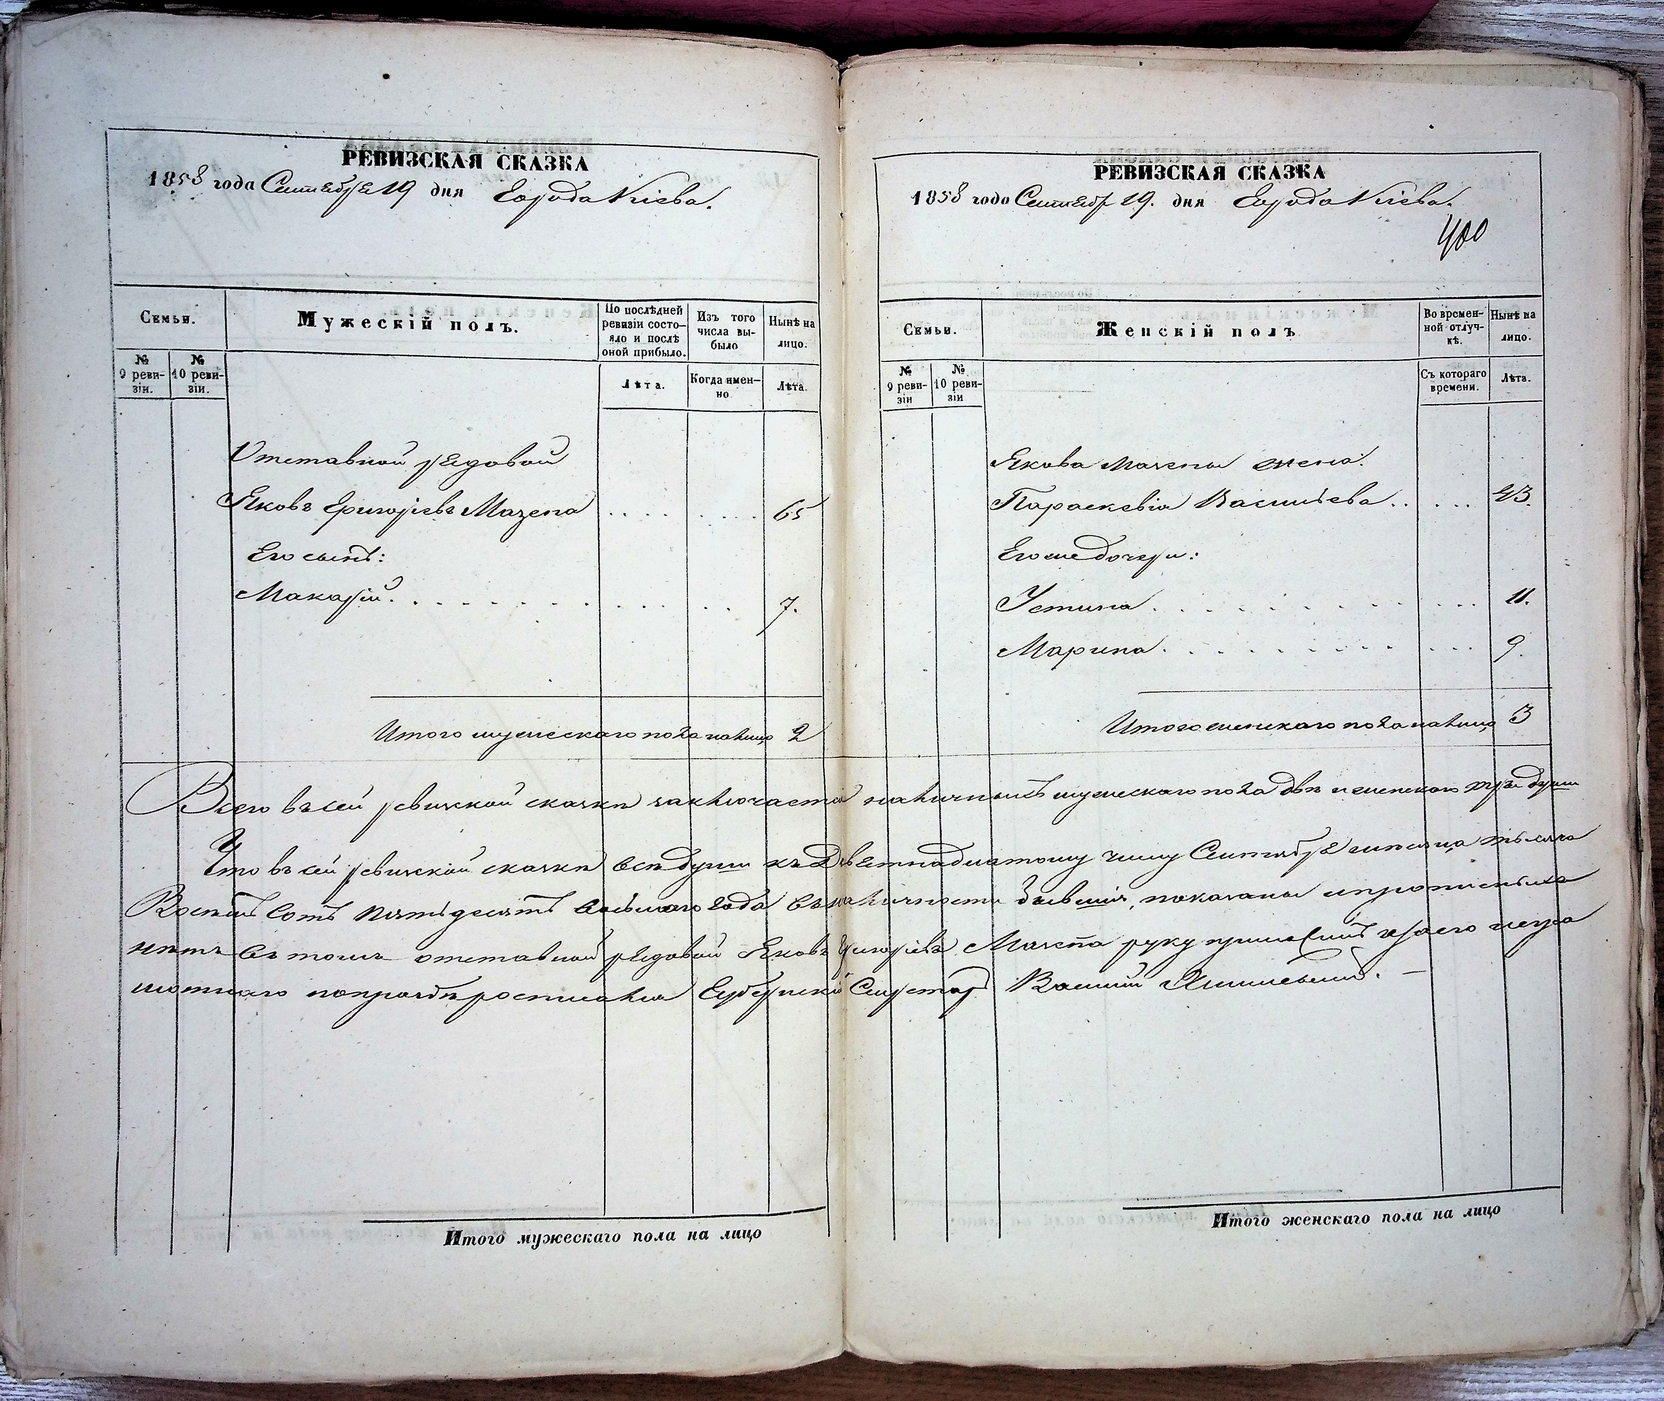 РЕВИЗСКАЯ СКАЗКА
1858 года Сентября 19 дня Города Кіева.
Семьи.
Мужескій полъ.
По послѣдней ревизіи состояло и послѣ оной прибыло.
Изъ того числа выбыло
Нынѣ на лицо.
№ 9 ревизіи.
№ 10 ревизіи.
Лѣта.
Когда именно
Лѣта.
Отставной рядовой
Яковъ Григорьевъ Мазепа 65
Его сынъ:
Макарій. 7.
Итого мужескаго пола налицо 2
РЕВИЗСКАЯ СКАЗКА
1858 года Сентябр 19. дня Города Кіева.
400
Семьи.
Женскій полъ
Во временной отлучкѣ.
Нынѣ на лицо.
№ 9 ревизіи
№ 10 ревизіи
Съ котораго времени.
Лѣта.
Якова Мазепы жена.
Параскевія Васильева 43.
Его же дочери:
Устина 11.
Марина. 9.
Итого женскаго пола налицо 3
Всего въ сей ревизской сказкѣ заключается наличныхъ мужескаго пола двѣ и женскаго три души
Что въ сей ревизской сказкѣ всѣ души къ Девятнадцатому числу Сентября мѣсяца тысяча
Восемь Сотъ пятьдесятъ восьмаго года въ наличности бывшія, показаны и прописныхъ
нѣтъ въ томъ отставной рядовой Яковъ Григорьевъ Мазепа руку приложилъ а за его негра
мотнаго по просьбѣ росписался Губернскій Секретарь Василій
Итого мужескаго пола на лицо
Итого женскаго пола на лицо